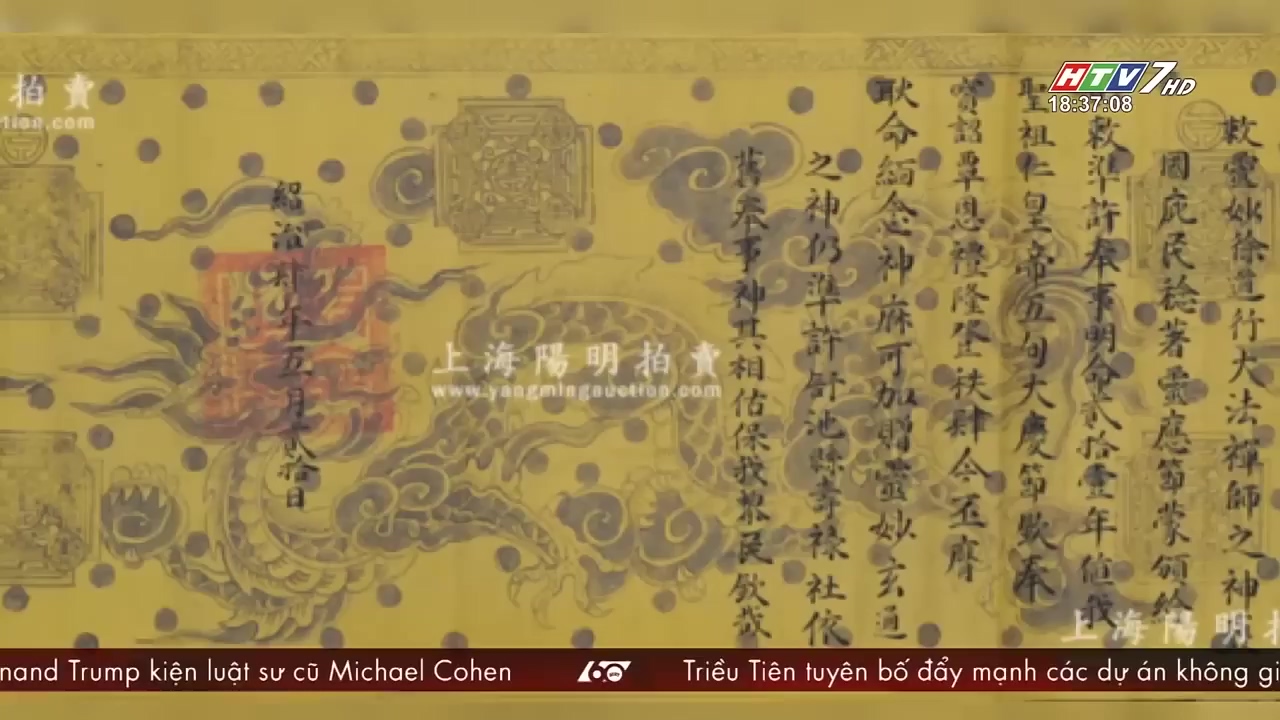 HTV7 HD
18:37:08
敕靈妙徐道行大法禪師之神
國庇民稔著靈應節蒙頒給
敕準許奉事明命貳拾壹年值我
聖祖仁皇帝五旬大慶節欽奉
寶詔覃恩禮隆登秩肆今丕膺
耿命緬念神庥可加贈靈妙玄通
之神仍準許
社依
舊奉事神其相佑保我黎民欽哉
紹治肆年五月貳拾日
拍賣
tion.com
上海陽明拍賣
www.yangmingauction.com
上海陽明拍
nand Trump kiện luật sư cũ Michael Cohen
60 giây
Triều Tiên tuyên bố đẩy mạnh các dự án không gi